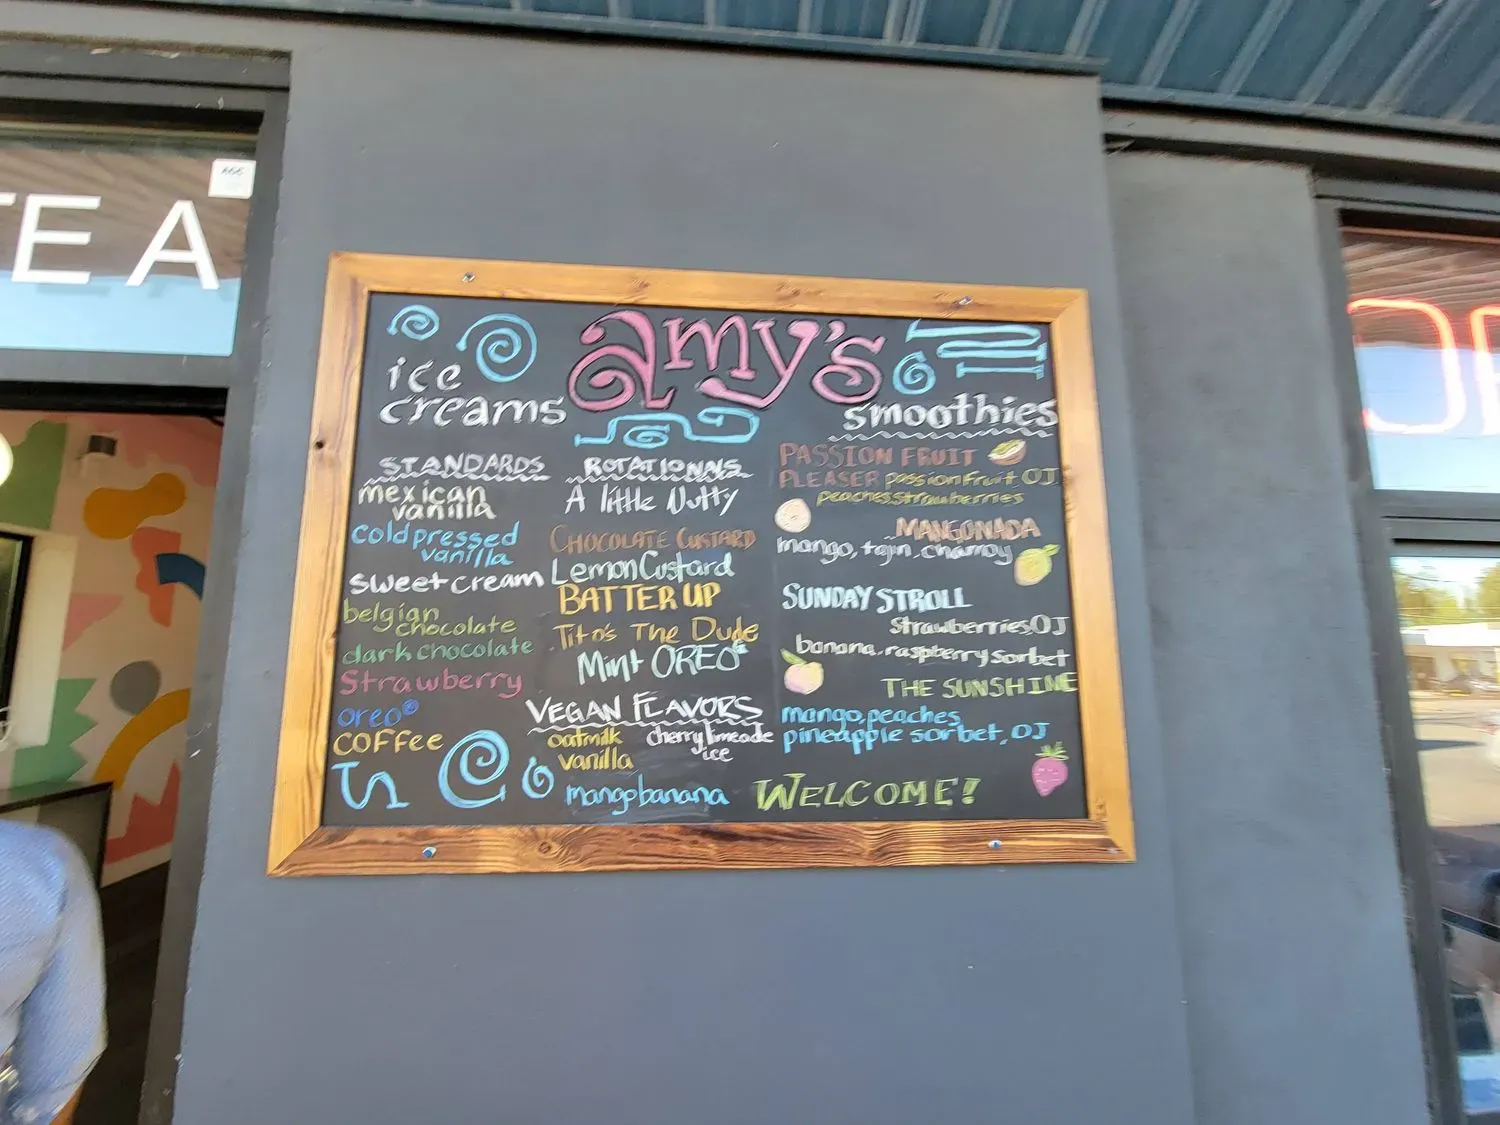 TE A
amy's
ice
creams
STANDARDS
mexican
vanilla
cold pressed
vanilla
sweet cream
belgian
chocolate
dark chocolate
Strawberry
oreo®
COFFee
ROTATIONALS
A little Nutty
CHOCOLATE CUSTARD
Lemon Custard
BATTER UP
Tito's The Dude
Mint OREO®
VEGAN FLAVORS
oatmilk
vanilla
cherry limeade
ice
mango banana
smoothies
PASSION FRUIT
PLEASER passion fruit OJ
peaches, strawberries
MANGONADA
mango, tajin, chamoy
SUNDAY STROLL
Strawberries OJ
banana, raspberry sorbet
THE SUNSHINE
mango, peaches
pineapple sorbet, OJ
WELCOME!